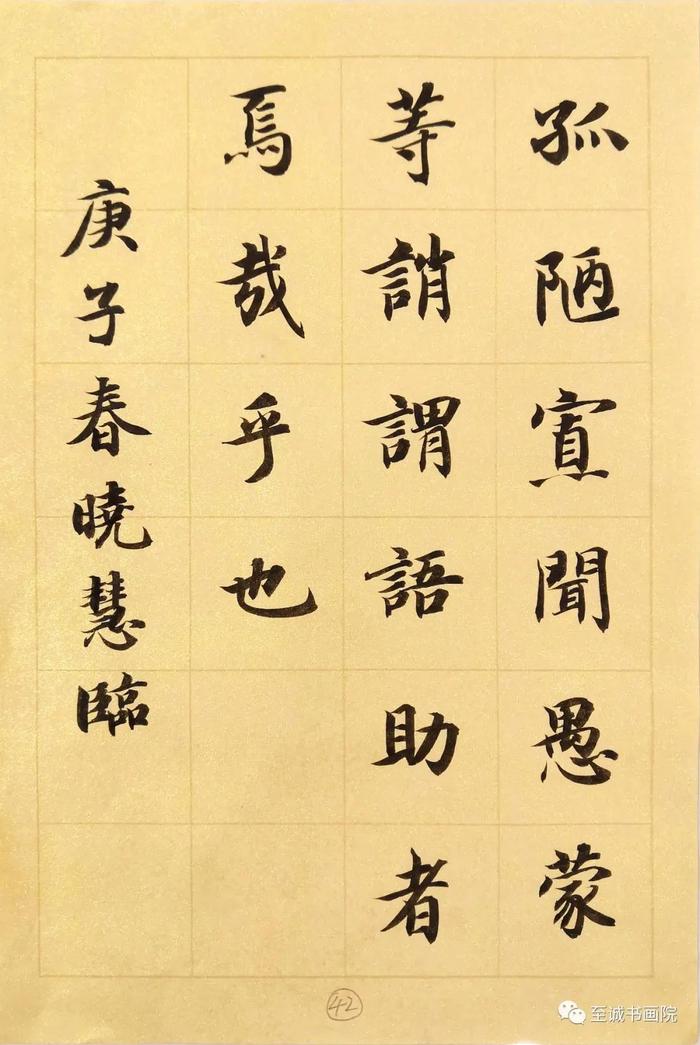 孤陋寡聞愚蒙
等誚謂語助者
焉哉乎也
庚子春曉慧臨
42
至诚书画院